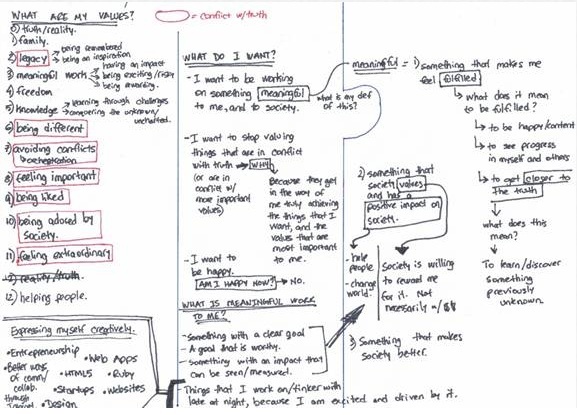 WHAT ARE MY VALUES?
= conflict w/truth
0) truth/reality.
1) family.
2) legacy → being remembered
→ being an inspiration
3) meaningful work → having an impact
→ being exciting/risky
→ being rewarding.
4) freedom
5) knowledge → learning through challenges
→ conquering the unknown/
uncharted.
6) being different
7) avoiding conflicts
8) feeling important
9) being liked
10) being adored by
society.
11) feeling extraordinary
12) reality/truth.
12) helping people.
Expressing myself creatively.
• Entrepreneurship
• Better ways
of comm/
collab.
through
• Web Apps
• HTML5
• Ruby
• Startups
• Websites
• Design
WHAT DO I WANT?
- I want to be working
on something meaningful
to me, and to society.
what is my def
of this?
- I want to stop valuing
things that are in conflict
with truth → WHY
(or are in
conflict w/
more important
values)
Because they get
in the way of
me truly achieving
the things that I
want, and the
values that are
most important
to me.
- I want to
be happy.
AM I HAPPY NOW? → NO.
WHAT IS MEANINGFUL WORK
TO ME?
- Something with a clear goal
- A goal that is worthy.
- Something with an impact that
can be seen/measured.
- Things that I work on/tinker with
late at night, because I am excited and driven by it.
meaningful = 1) something that makes me
feel fulfilled
↳ what does it mean
to be fulfilled?
↳ to be happy/content
↳ to see progress
in myself and others
↳ to get closer to
the truth
↓
what does this
mean?
↓
To learn/discover
something
previously
unknown.
2) something that
society values
and has a
positive impact on
society.
- help
people
- change
world.
Society is willing
to reward me
for it. Not
necessarily w/ $$
3) Something that makes
society better.